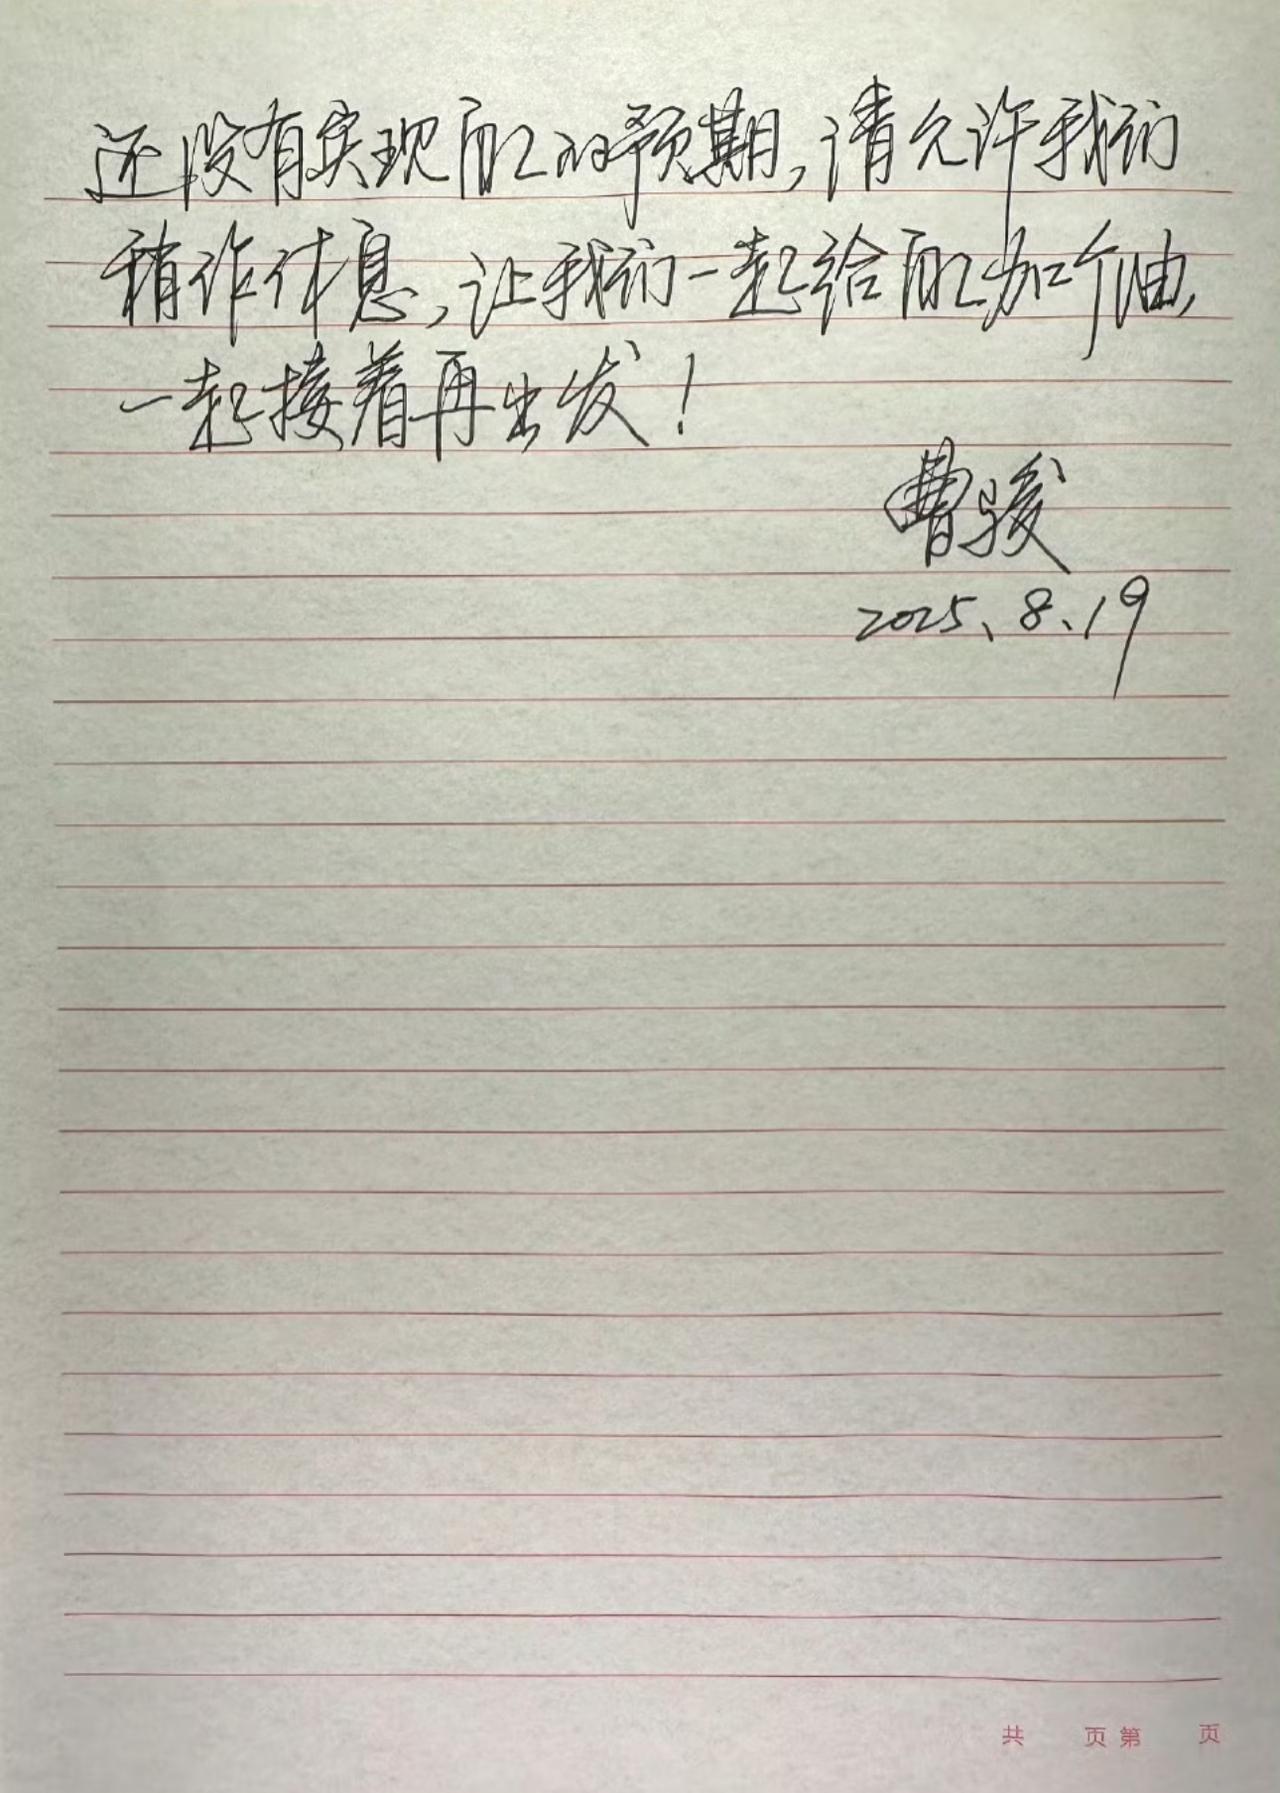 还没有实现自己的预期，请允许我们
稍作休息，让我们一起给自己加个油，
一起接着再出发！
曹骏
2025、8、19
共 页 第 页